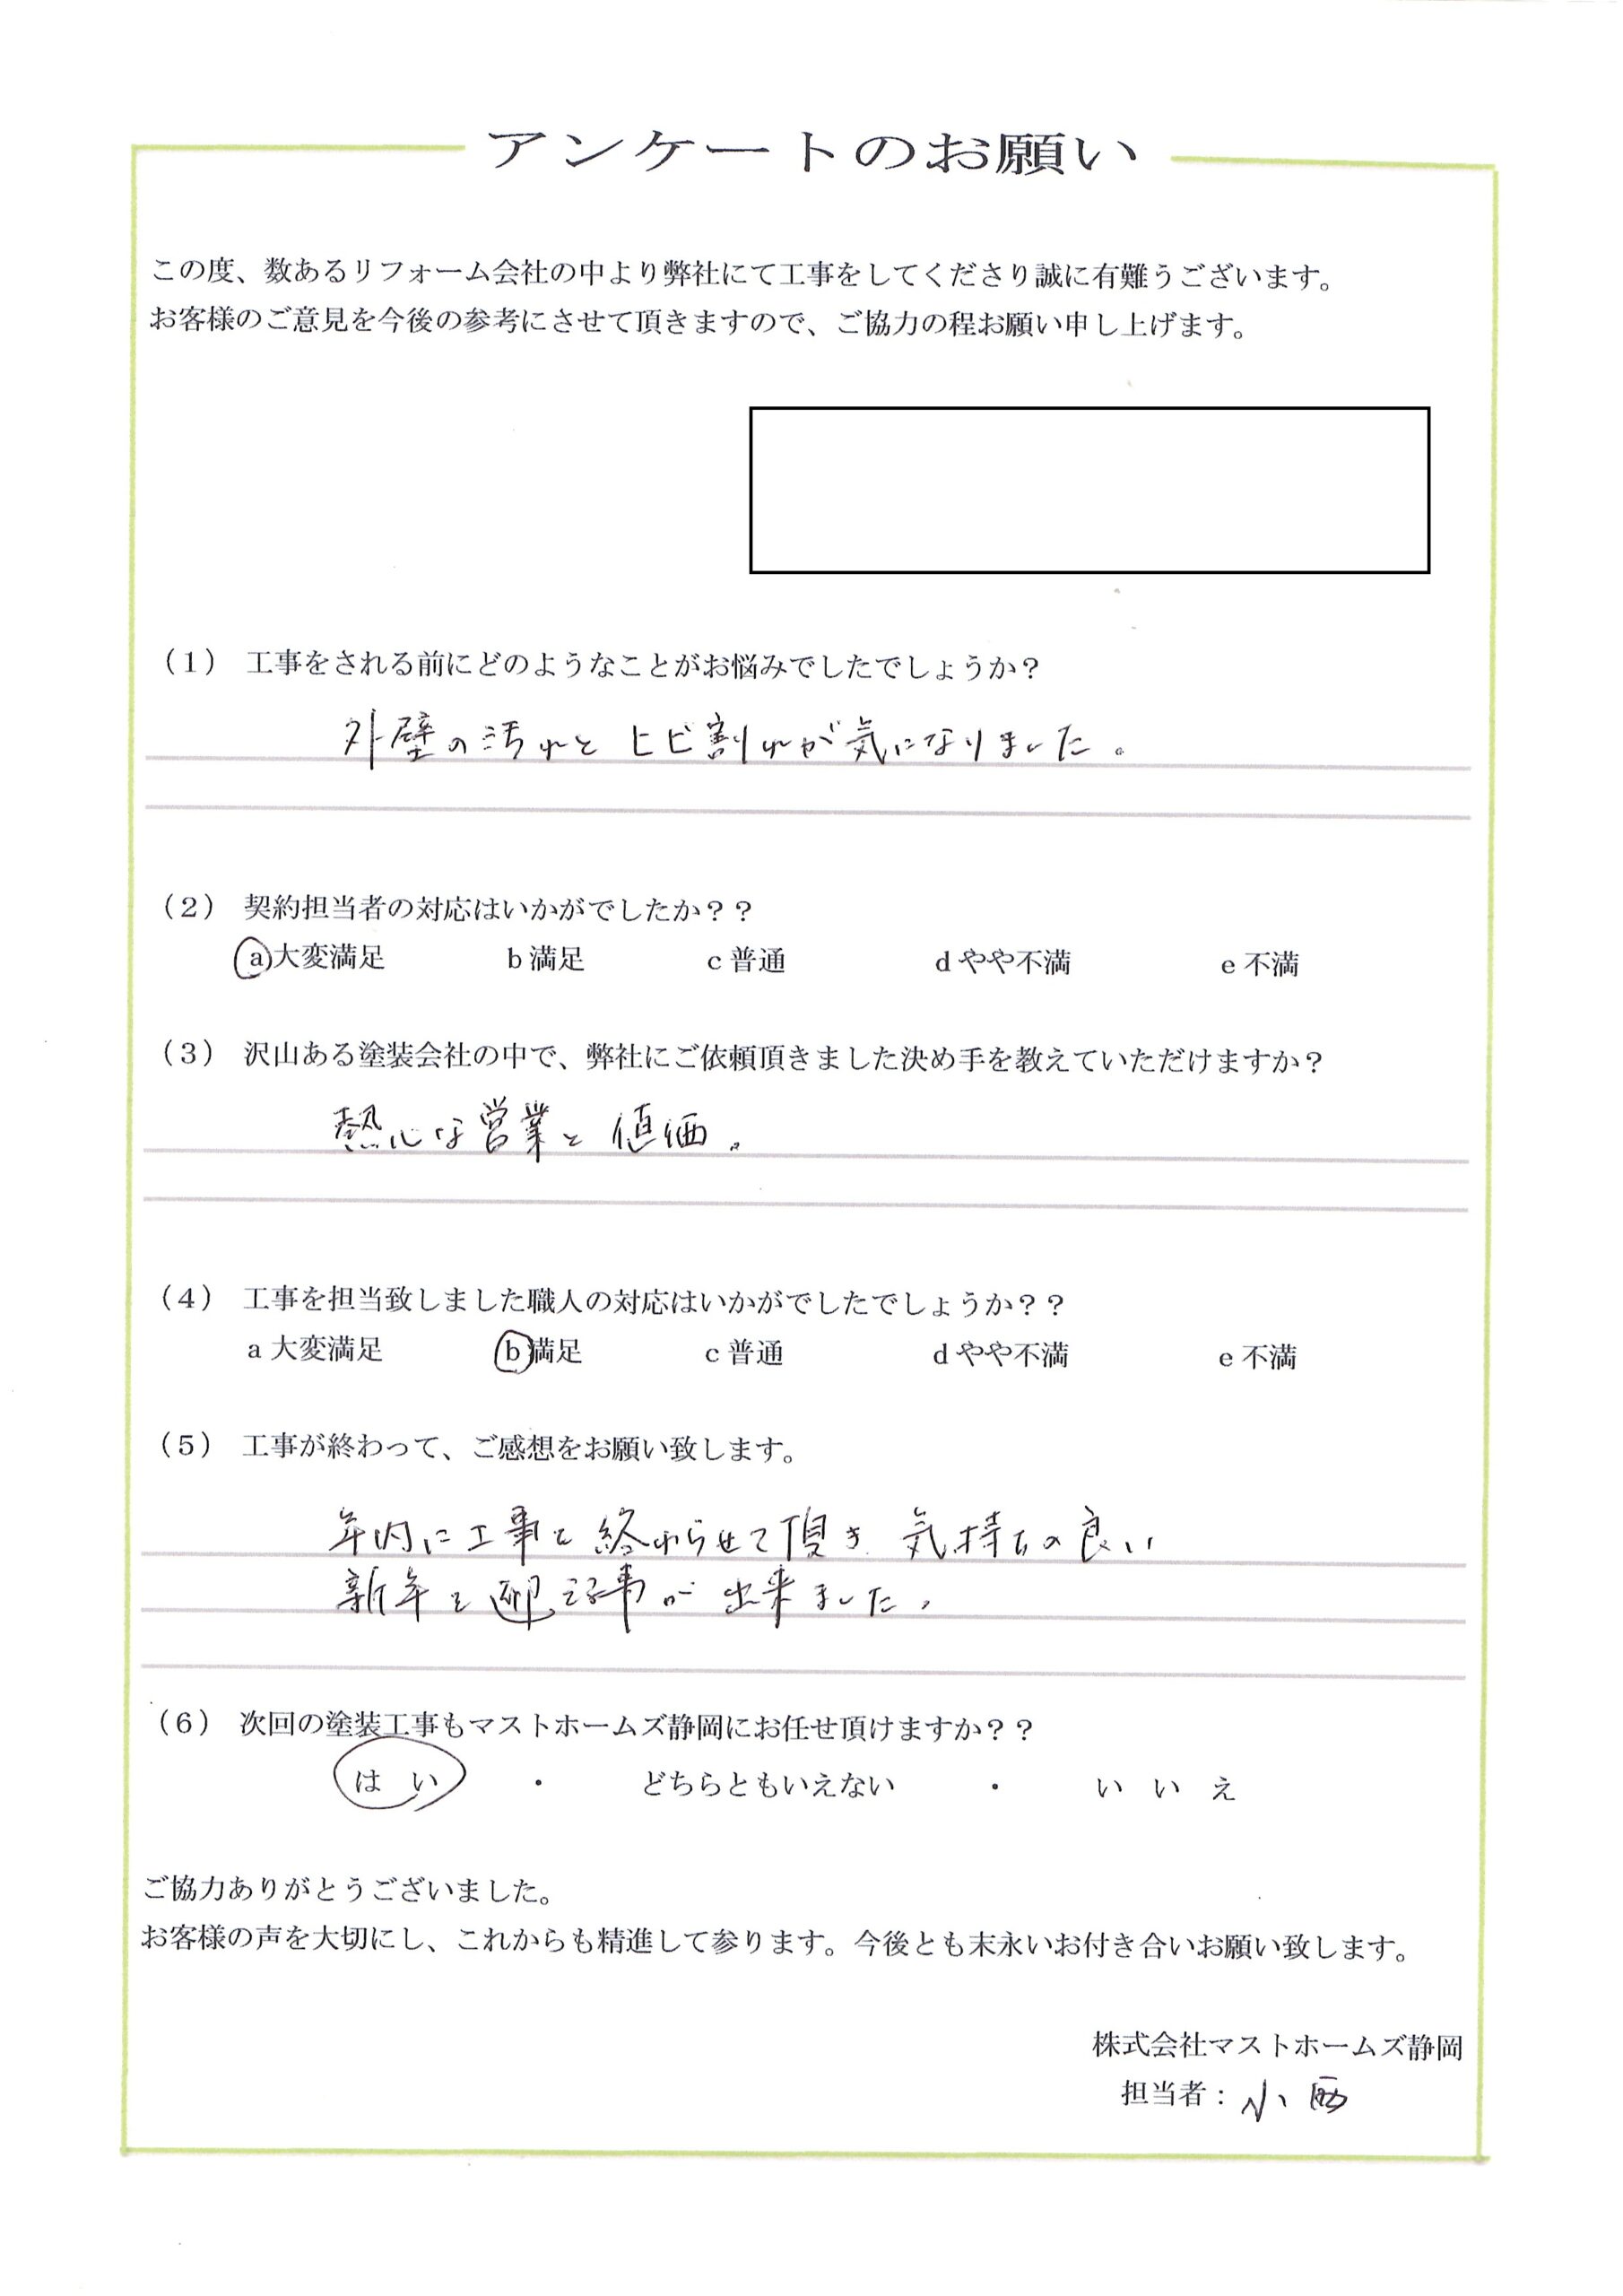 アンケートのお願い
この度、数あるリフォーム会社の中より弊社にて工事をしてくださり誠に有難うございます。
お客様のご意見を今後の参考にさせて頂きますので、ご協力の程お願い申し上げます。
（1） 工事をされる前にどのようなことがお悩みでしたでしょうか？
外壁の汚れと ヒビ割れが気になりました。
（2） 契約担当者の対応はいかがでしたか？？
a 大変満足 b 満足 c 普通 d やや不満 e 不満
（3） 沢山ある塗装会社の中で、弊社にご依頼頂きました決め手を教えていただけますか？
熱心な営業と 値価。
（4） 工事を担当致しました職人の対応はいかがでしたでしょうか？？
a 大変満足 b 満足 c 普通 d やや不満 e 不満
（5） 工事が終わって、ご感想をお願い致します。
年内に工事を終わらせて頂き 気持ちの良い
新年を迎える事が 出来ました。
（6） 次回の塗装工事もマストホームズ静岡にお任せ頂けますか？？
は い ・ どちらともいえない ・ い い え
ご協力ありがとうございました。
お客様の声を大切にし、これからも精進して参ります。今後とも末永いお付き合いお願い致します。
株式会社マストホームズ静岡
担当者：小西